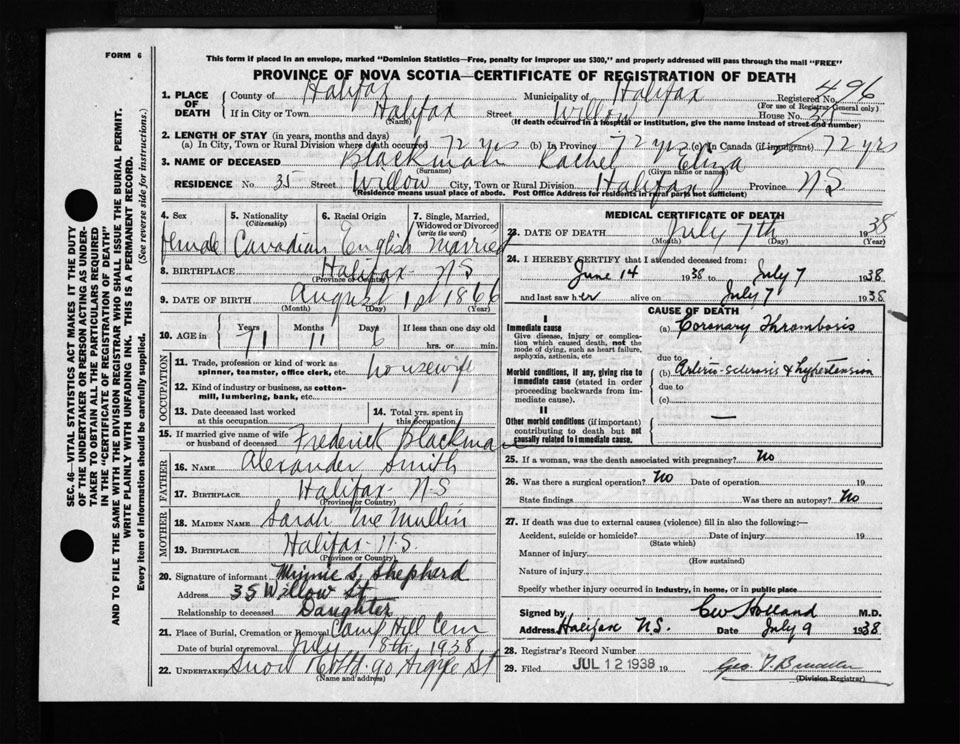 FORM 6
This form if placed in an envelope, marked "Dominion Statistics—Free, penalty for improper use $300," and properly addressed will pass through the mail "FREE"
PROVINCE OF NOVA SCOTIA—CERTIFICATE OF REGISTRATION OF DEATH
1. PLACE OF DEATH County of Halifax Municipality of Halifax Registered No. 496
(For use of Registrar General only)
If in City or Town Halifax Street Willow House No. 35
(Name) (If death occurred in a hospital or institution, give the name instead of street and number)
2. LENGTH OF STAY (in years, months and days)
(a) In City, Town or Rural Division where death occurred 72 yrs (b) In Province 72 yrs (c) In Canada (if immigrant) 72 yrs
3. NAME OF DECEASED Blackman Rachel Eliza
(Surname) (Given name or names)
RESIDENCE No. 35 Street Willow City, Town or Rural Division Halifax Province NS
(Residence means usual place of abode. Post Office Address for residents in rural parts not sufficient)
4. Sex 5. Nationality (Citizenship) 6. Racial Origin 7. Single, Married, Widowed or Divorced (write the word)
female Canadian English Married
8. BIRTHPLACE Halifax NS
(Province or Country)
9. DATE OF BIRTH August 1st 1866
(Month) (Day) (Year)
10. AGE in Years Months Days If less than one day old
71 11 6 hrs. or min.
OCCUPATION
11. Trade, profession or kind of work as spinner, teamster, office clerk, etc. housewife
12. Kind of industry or business, as cotton-mill, lumbering, bank, etc.
13. Date deceased last worked at this occupation 14. Total yrs. spent in this occupation
15. If married give name of wife or husband of deceased Frederick Blackman
FATHER
16. NAME Alexander Smith
17. BIRTHPLACE Halifax NS
(Province or Country)
MOTHER
18. MAIDEN NAME Sarah McMullin
19. BIRTHPLACE Halifax N.S.
(Province or Country)
20. Signature of informant Minnie S. Shephard
Address 35 Willow St
Relationship to deceased Daughter
21. Place of Burial, Cremation or Removal Camp Hill Cem
Date of burial or removal July 8th 1938
22. UNDERTAKER Snow 90 Argyle St
(Name and address)
MEDICAL CERTIFICATE OF DEATH
23. DATE OF DEATH July 7th 1938
(Month) (Day) (Year)
24. I HEREBY CERTIFY that I attended deceased from:
June 14 1938 to July 7 1938
and last saw her alive on July 7 1938
CAUSE OF DEATH
I
Immediate cause (a) Coronary Thrombosis
Give disease, injury or complication which caused death, not the mode of dying, such as heart failure, asphyxia, asthenia, etc
due to
Morbid conditions, if any, giving rise to immediate cause (stated in order proceeding backwards from immediate). (b) Arterio-sclerosis & hypertension
due to
(c)
II
Other morbid conditions (if important) contributing to death but not causally related to immediate cause. —
25. If a woman, was the death associated with pregnancy? No
26. Was there a surgical operation? No Date of operation 19
State findings Was there an autopsy? No
27. If death was due to external causes (violence) fill in also the following:—
Accident, suicide or homicide? Date of injury 19
(State which)
Manner of injury
(How sustained)
Nature of injury
Specify whether injury occurred in industry, in home, or in public place
Signed by CW Holland M.D.
Address Halifax N.S. Date July 9 1938
28. Registrar's Record Number
29. Filed JUL 12 1938 19
(Division Registrar)
SEC. 46—VITAL STATISTICS ACT MAKES IT THE DUTY
OF THE UNDERTAKER OR PERSON ACTING AS UNDER-
TAKER TO OBTAIN ALL THE PARTICULARS REQUIRED
IN THE "CERTIFICATE OF REGISTRATION OF DEATH"
AND TO FILE THE SAME WITH THE DIVISION REGISTRAR WHO SHALL ISSUE THE BURIAL PERMIT.
WRITE PLAINLY WITH UNFADING INK. THIS IS A PERMANENT RECORD.
Every item of information should be carefully supplied. (See reverse side for instructions.)